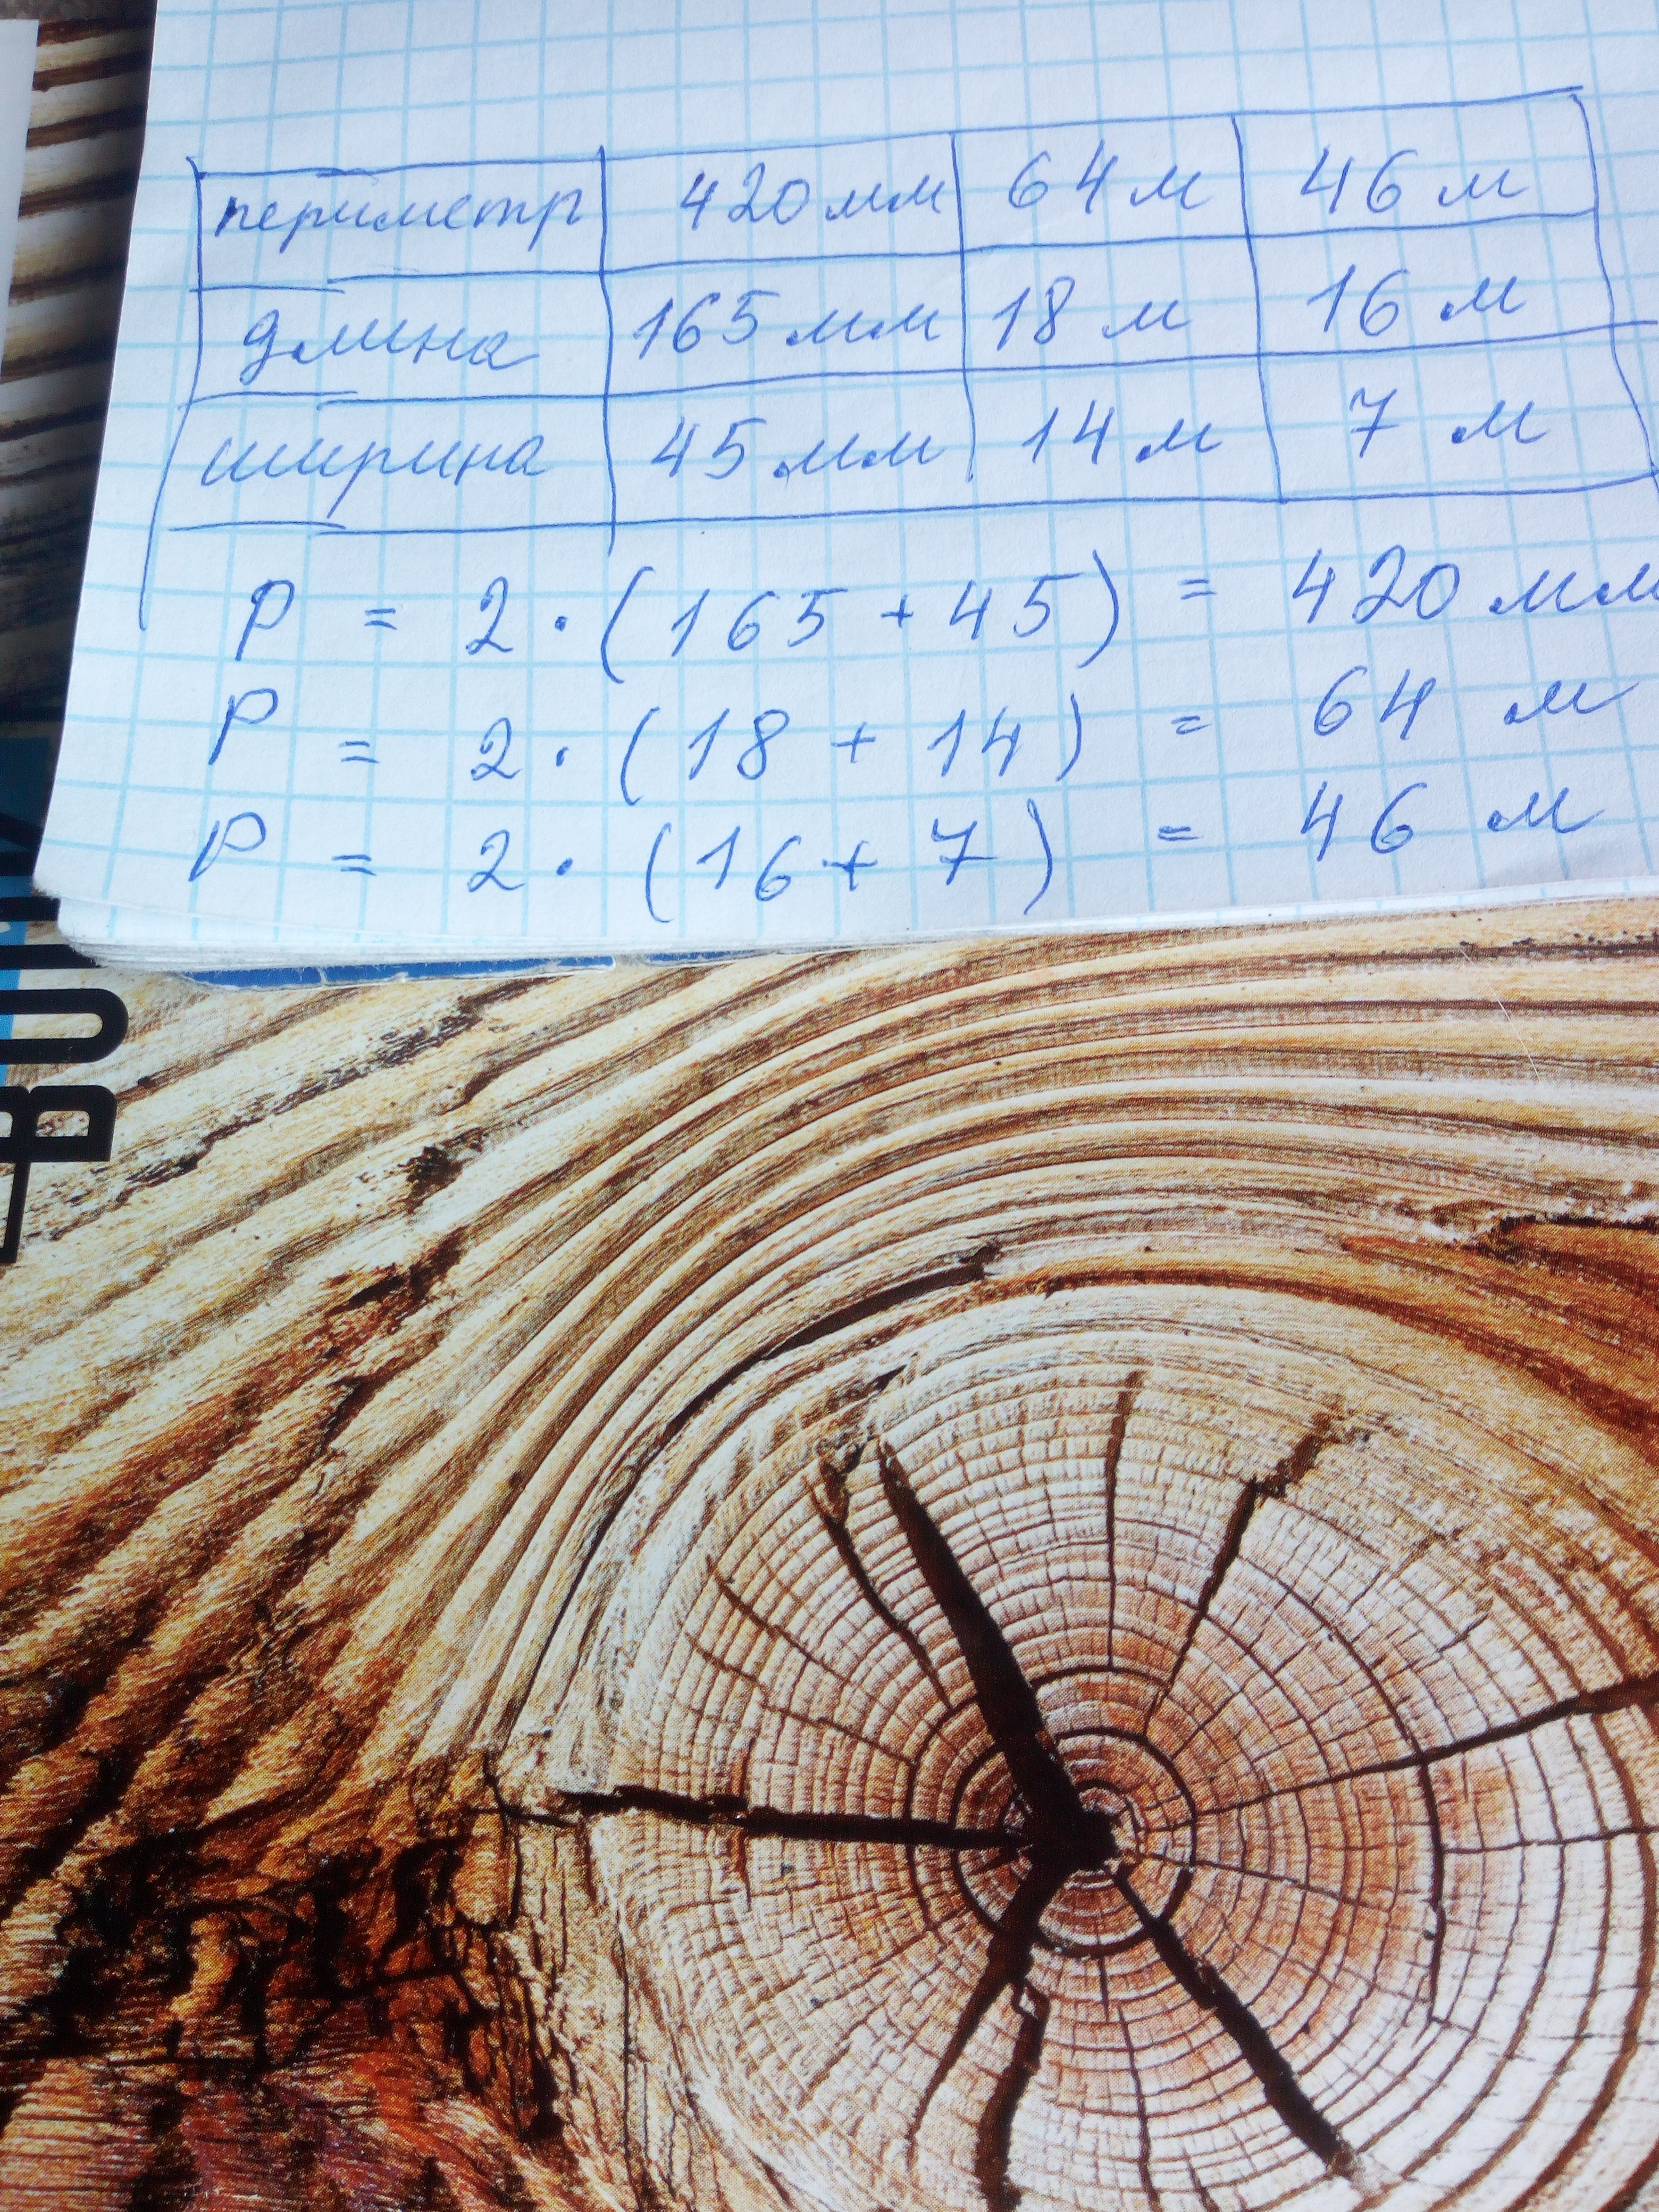 периметр 420 мм 64 м 46 м
длина 165 мм 18 м 16 м
ширина 45 мм 14 м 7 м
P = 2 · (165 + 45) = 420 мм
P = 2 · (18 + 14) = 64 м
P = 2 · (16 + 7) = 46 м